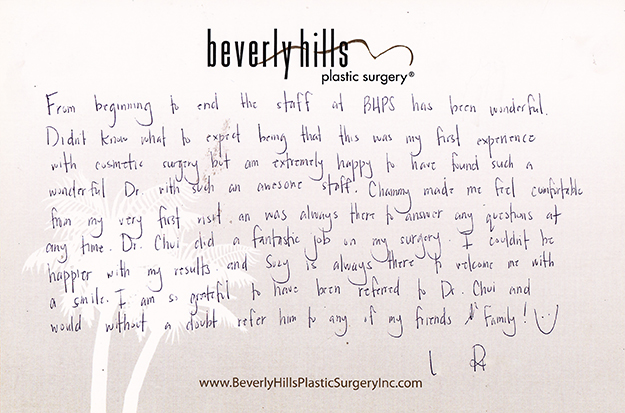 beverly hills
plastic surgery®
From beginning to end the staff at BHPS has been wonderful.
Didn't know what to expect being that this was my first experience
with cosmetic surgery but am extremely happy to have found such a
wonderful Dr. with such an awesome staff. Chammy made me feel comfortable
from my very first visit an was always there to answer any questions at
any time. Dr. Chui did a fantastic job on my surgery. I couldn't be
happier with my results and Suzy is always there to welcome me with
a smile. I am so grateful to have been referred to Dr. Chui and
would without a doubt refer him to any of my friends & Family!
I R
www.BeverlyHillsPlasticSurgeryInc.com